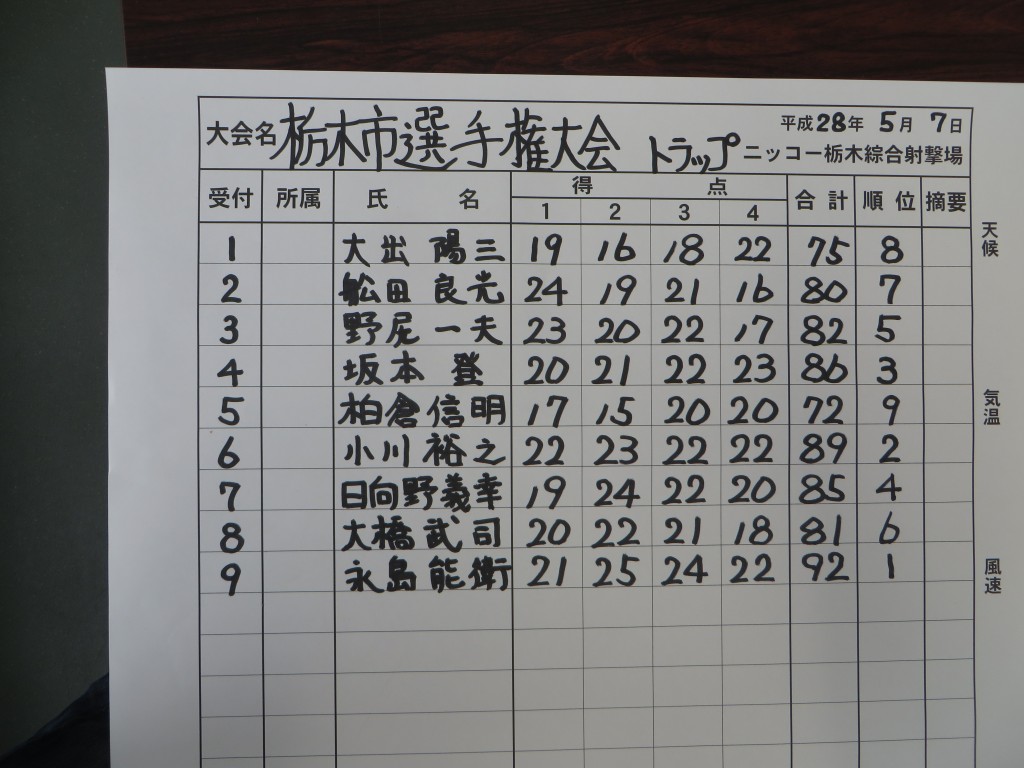 大会名 栃木市選手権大会 トラップ 平成28年 5月 7日
ニッコー栃木綜合射撃場
受付 所属 氏名 得点 合計 順位 摘要
1 2 3 4
1 大出 陽三 19 16 18 22 75 8
2 舩田 良光 24 19 21 16 80 7
3 野尻 一夫 23 20 22 17 82 5
4 坂本 登 20 21 22 23 86 3
5 柏倉信明 17 15 20 20 72 9
6 小川 裕之 22 23 22 22 89 2
7 日向野義幸 19 24 22 20 85 4
8 大橋武司 20 22 21 18 81 6
9 永島能衛 21 25 24 22 92 1
天候
気温
風速